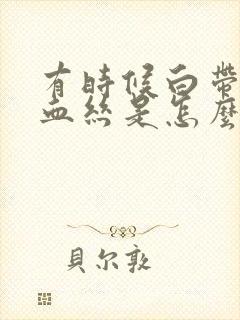 有時候白帶
血絲是怎麼
貝尔敦